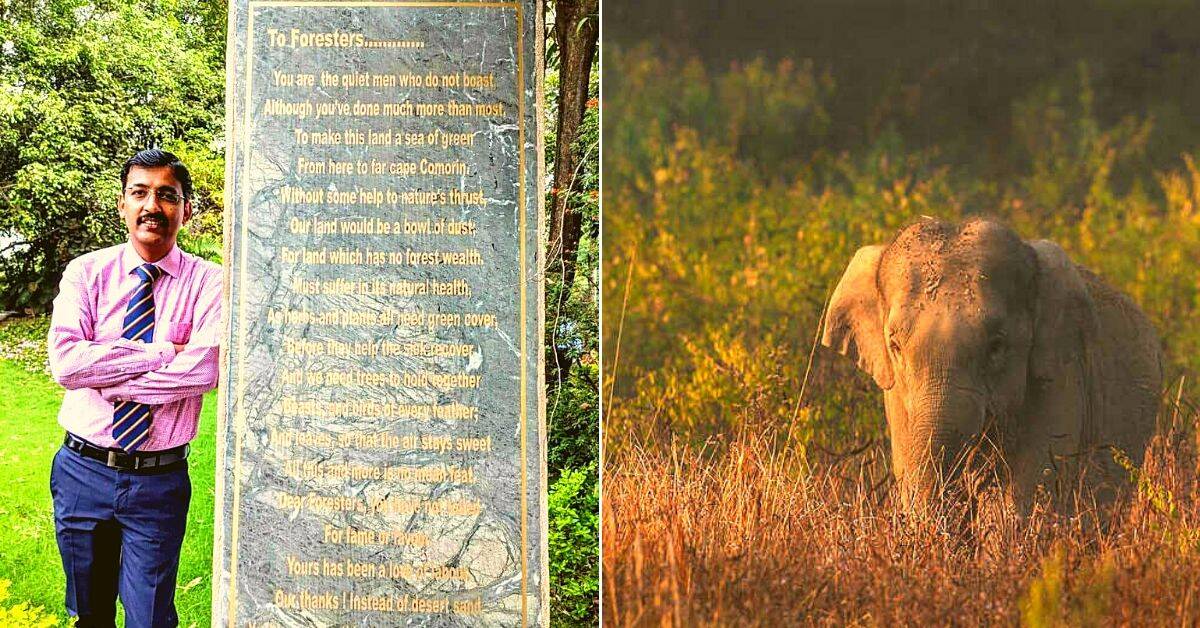 To Foresters.............
You are the quiet men who do not boast,
Although you've done much more than most,
To make this land a sea of green
From here to far cape Comorin.
Without some help to nature's thrust,
Our land would be a bowl of dust;
For land which has no forest wealth,
Must suffer in its natural health,
As herbs and plants all need green cover,
Before they help the sick recover,
And we need trees to hold together
Beasts, and birds of every feather;
And leaves, so that the air stays sweet
All this and more is no mean feat.
Dear Foresters, you have not toiled
For fame or favour,
Yours has been a love of labour,
Our thanks ! Instead of desert sand,